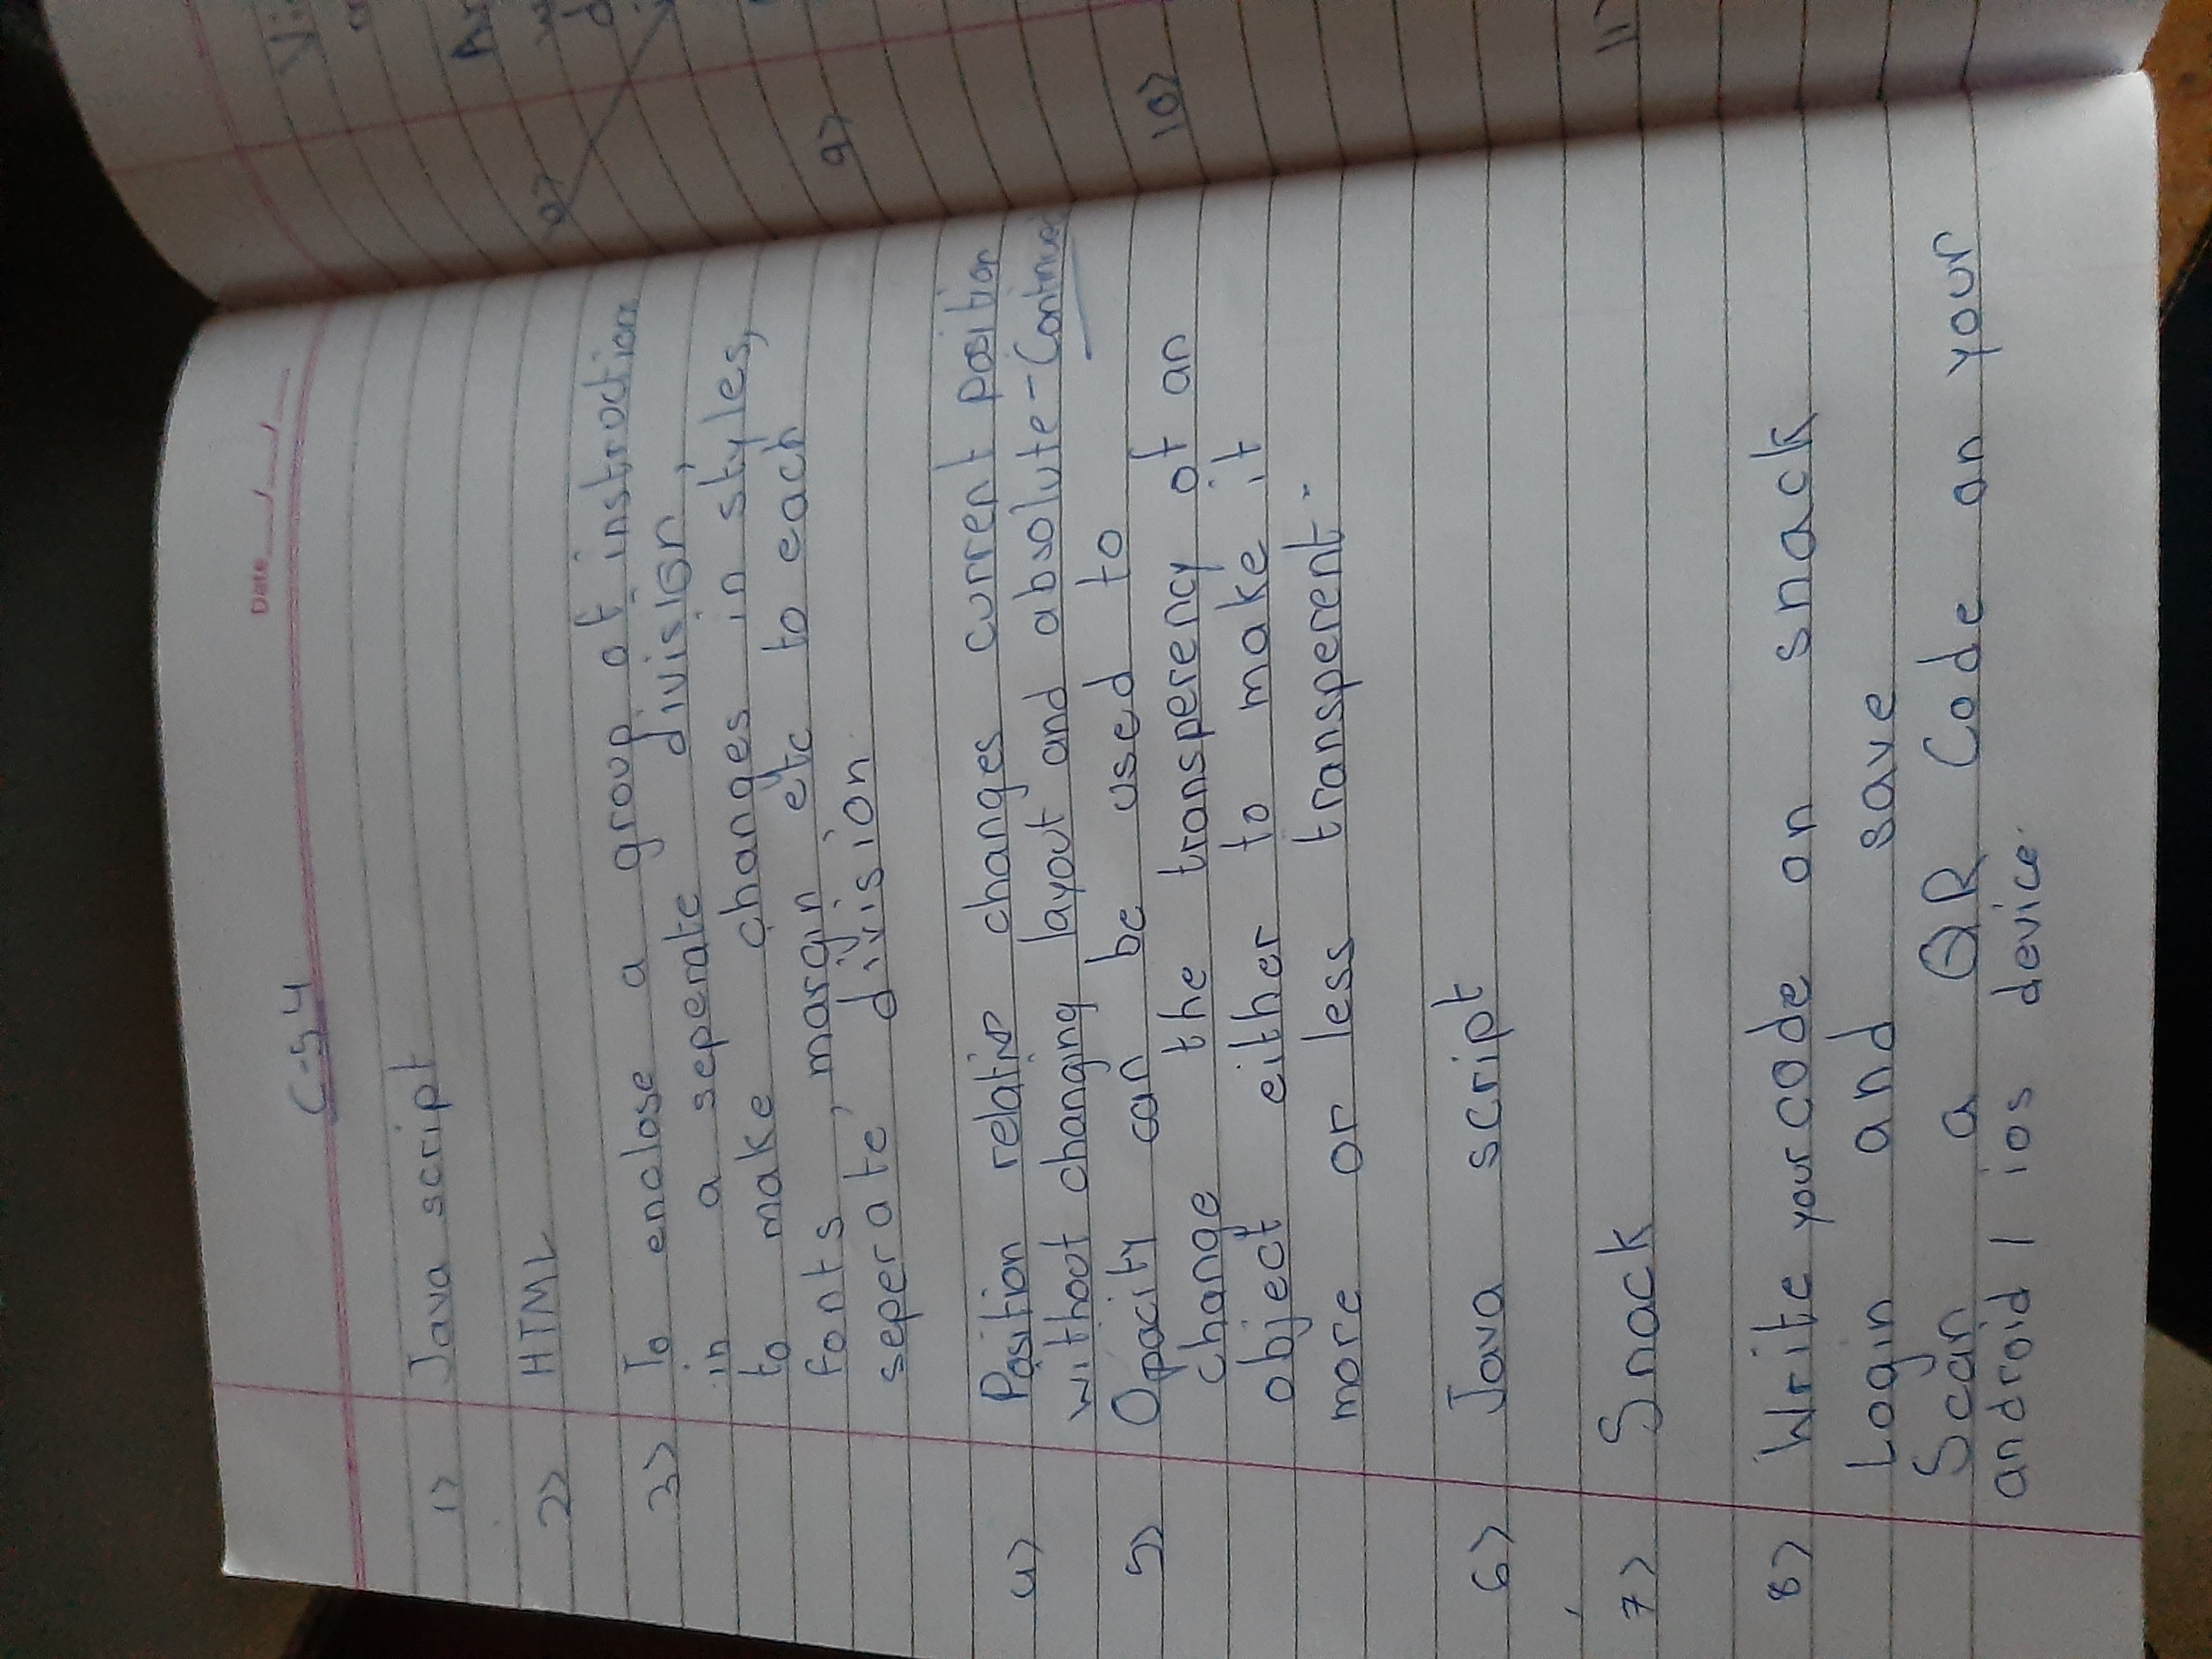 Date __/__/__
C-54
1) Java script
2) HTML
3) To enclose a group of instructions
in a seperate division,
to make changes in styles,
fonts, margin, etc to each
seperate division
4) Position relative changes current position
without changing layout and absolute - Continued
5) Opacity can be used to
change the transperency of an
object either to make it
more or less transperent.
6) Java script
7) Snack
8) Write your code on snack
Login and save
Scan a QR Code on your
android / ios device.
9)
10)
11)